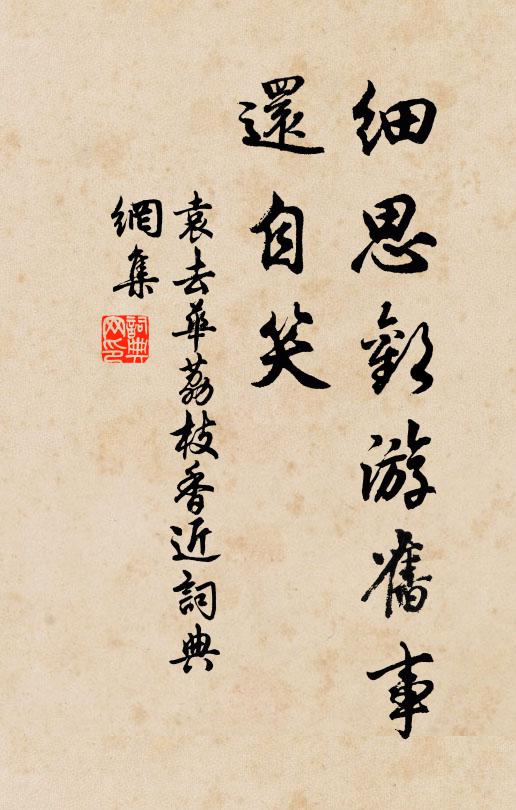 細思歡游舊事
還自笑
袁去華荔枝香近詞典
網集
詞典
网印